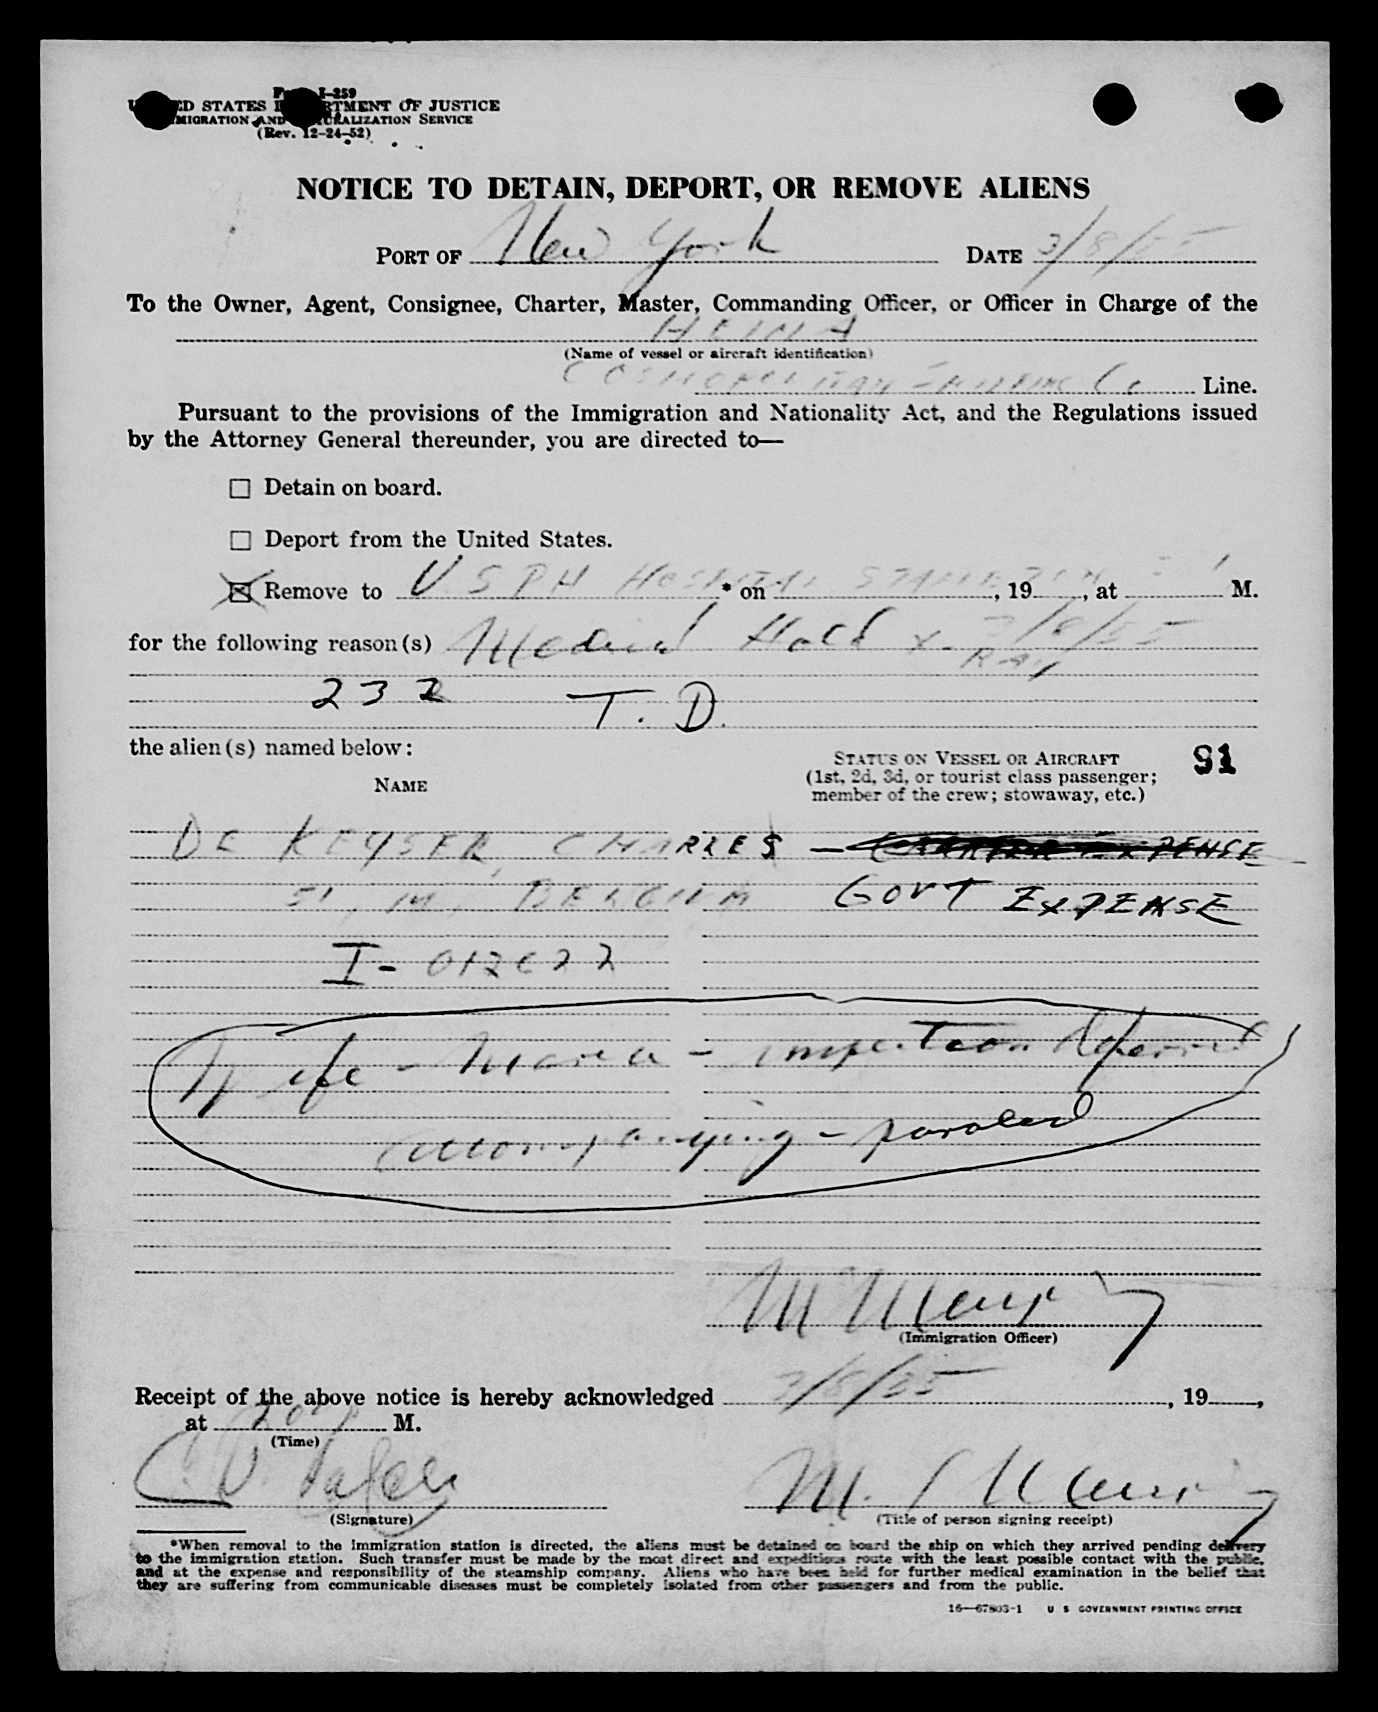 Form I-259
UNITED STATES DEPARTMENT OF JUSTICE
IMMIGRATION AND NATURALIZATION SERVICE
(Rev. 12-24-52)
NOTICE TO DETAIN, DEPORT, OR REMOVE ALIENS
PORT OF New York DATE 3/8/55
To the Owner, Agent, Consignee, Charter, Master, Commanding Officer, or Officer in Charge of the
HEINA
(Name of vessel or aircraft identification)
COSMOPOLITAN Co Line.
Pursuant to the provisions of the Immigration and Nationality Act, and the Regulations issued
by the Attorney General thereunder, you are directed to—
☐ Detain on board.
☐ Deport from the United States.
☒ Remove to USPH HOSPITAL STAPLETON S I * on , 19 , at M.
for the following reason(s) Medical Hold X-RAY 3/8/55
232 T. D.
the alien(s) named below:
STATUS ON VESSEL OR AIRCRAFT
(1st, 2d, 3d, or tourist class passenger;
member of the crew; stowaway, etc.)
91
NAME
DE KEYSER, CHARLES — CARRIER EXPENSE
51, M, BELGIUM GOVT EXPENSE
I-012622
Wife - Maria - inspection deferred
accompanying - paroled
M
(Immigration Officer)
Receipt of the above notice is hereby acknowledged 3/8/55, 19 ,
at M.
(Time)
C. V.
(Signature)
M.
(Title of person signing receipt)
*When removal to the immigration station is directed, the aliens must be detained on board the ship on which they arrived pending delivery
to the immigration station. Such transfer must be made by the most direct and expeditious route with the least possible contact with the public,
and at the expense and responsibility of the steamship company. Aliens who have been held for further medical examination in the belief that
they are suffering from communicable diseases must be completely isolated from other passengers and from the public.
16—67803-1 U S GOVERNMENT PRINTING OFFICE